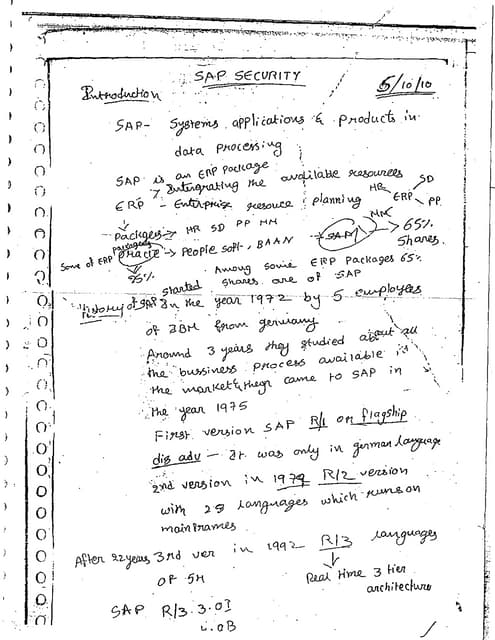 SAP SECURITY
5/10/10
Introduction
SAP- Systems, applications & products in
data processing
SAP is an ERP package
→ Intergrating the available resources
ERP - Enterprise resource planning
HR SD
ERP
MM PP
Packages → HR SD PP MM
SAP → 65%
Shares.
Some of ERP packages
Oracle → People soft, BAAN
35%
Among some ERP Packages 65%
shares are of SAP
History of SAP started In the year 1972 by 5 employees
of IBM from germany
Around 3 years they studied about all
the bussiness process available in
the market & they came to SAP in
the year 1975
First version SAP R/1 on flagship
dis adv - It was only in german language
2nd version in 1979 R/2 version
with 28 languages which runs on
mainframes.
After 22 years 3rd ver in 1992 R/3 languages
OF 54
Real time 3 tier
architecture
SAP R/3.3.0I